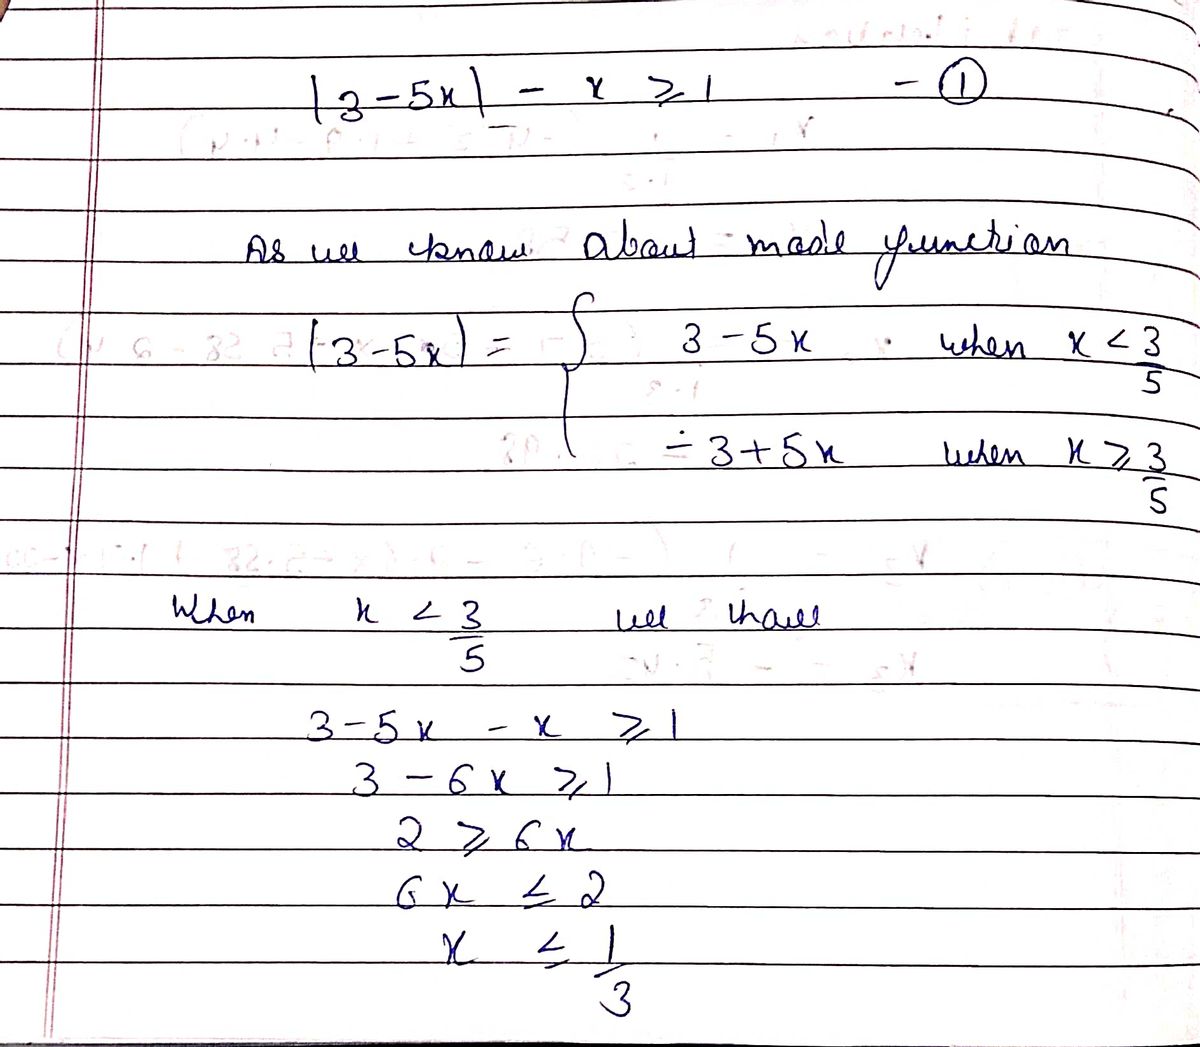 |3-5x| - x ≥ 1 - ①
As we know about mode function
|3-5x| = { 3-5x when x < 3/5
-3+5x when x ≥ 3/5
When x < 3/5 we have
3-5x - x ≥ 1
3 - 6x ≥ 1
2 ≥ 6x
6x ≤ 2
x ≤ 1/3